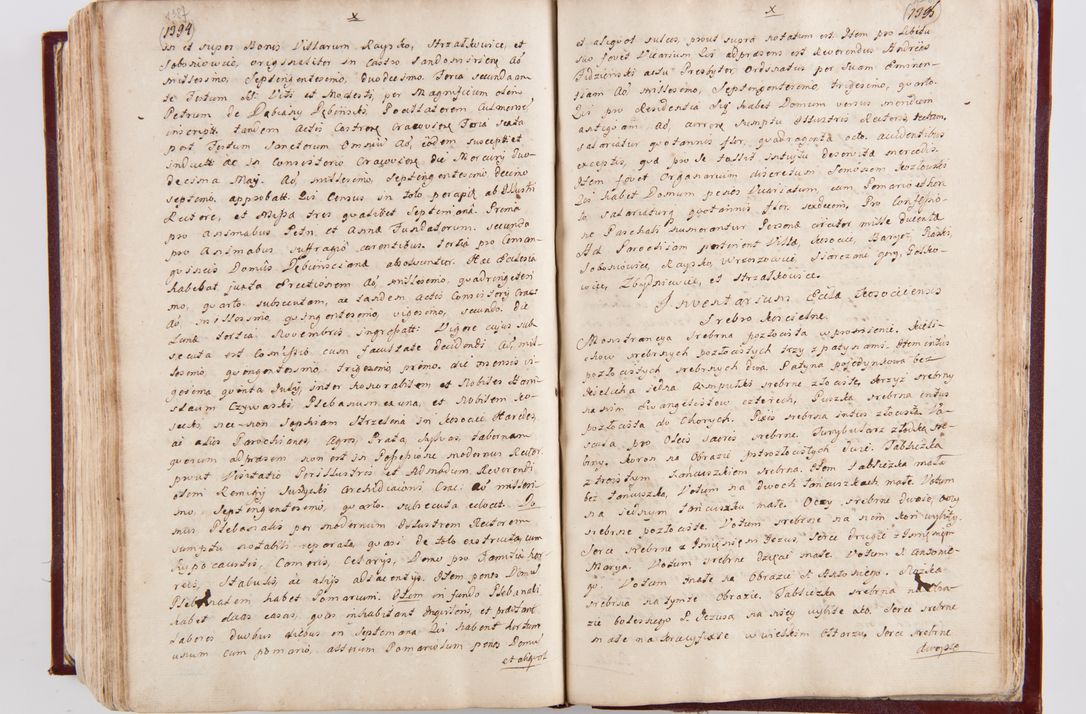 1394
x
in et super Bonis Villarum Rayska, Strzałkowice, et
Sobosniowice, originaliter in Castro Sandomiriens Aō
millesimo, Septengentesimo, duodecimo. Feria secunda an-
te Festum SS: Viti et Modesti, per Magnificum olim
Petrum de Dąbiany Dębinski
inscript. tandem Actis Castren: Cracovien: Feria sexta
post Festum Sanctorum Omnium Aō eodem suscept: et
induct: ac in Consistorio Cracovien: die Mercurij Duo-
decima Maij. Aō millesimo, Septengentesimo decimo
septimo, approbatt. Qui Census in toto percipit ab Illustri
Rectore, et Missa tres qualibet Septimana. Prima
pro Animabus Petri, et Anna Fundatorum. secunda
pro Animabus suffragio carentibus. tertia pro
Domus Dębinsciana absolvuntur. Hac Ecclesia
habebat juxta Erectionem Aō, millesimo, quadringentesi
mo, quarto subsecutam, ac tandem Actis Consistorij Crac:
Aō, millesimo, quingentesimo, vigesimo, secundo. Die
Luna tertia Novembris ingrossatt. Vigore cujus sub
secuta est Comissio cum facultate decidendi Aō, mil-
lesimo, quingentesimo, trigesimo primo. die mensis vi-
gesima quinta July, inter Honorabilem et Nobiles Stani
slaum Czywarski Plebanum una, et Nobilem Ko-
secki, nec-non Sophiam Strzelina in Kosocice Hardes,
ac alios Parochianos, Agros, Prata, sylvas, tabernam
quorum adprasens non est in Possessione modernus Rector.
prout Visitatio Perillustris et Admodum Reverendi
olim Remigij Suszycki Archidiaconi Crac. Aō millesi-
mo, Septengentesimo, quarto subsecuta edocet. Do
mus, Plebanalis per modernum Illustrem Rectorem
sumptu notabili reparata, quasi de toto extructa, cum
hypocaustis, Cameris, Celarijs, Domo pro Familia, hor
reis, stabulis, ac alijs adjacentijs. Item penes Domū
Plebanalem habet Pomarium. Item in fundo Plebanali
habet duas casas, quas inhabitant Inquilini, et prastant
labores duobus diebus in Septimana Qui habent hortum
unum cum pomario, alterum Pomariolum penes Domū
et aliquot
1395
x
et aliquot sulcos, prout supra notatum est. Item pro libitu
suo fovet Vicarium Qui adprasens est Reverendus Andreas
Fidzinski actu Presbyter Ordinatus per Suam Eminen-
tiam Aō millesimo, Septengentesimo, trigesimo, quarto.
Qui pro Residentia sua habet Domum versus meridiem
antiquam Aō, currente sumptu Illustris Rectoris tectam,
salariatur quotannis flor, quadraginta octo. accidentibus
exceptis, qua pro se tollit intuitu deservita mercedis.
Item fovet Organarium discretum Simonem Kozłowski
Qui habet Domum penes Vicariatum, cum Pomario et hor
to, salariatur quotannis flor. sexdecem. Pro Confessio-
ne Paschali numerantur Persona circiter mille ducenta
Ad Parochiam pertinent Villa, Kosocice, Barycz, Rajski,
Sobosniowice, Rayska, Wrzosowice, Siarczana gory, Golko-
wice, Zbydniowice, et Strzałkowice.
Inventarium Eccla Kosociciensis
Srebro Koscielne.
Monstrancya srebrna pozłocista w promienie, Kieli-
chow srebrnych pozłocistych trzy z patynami. Item intus
pozłocistych srebrnych dwa. Patyna pojedynkowa bez
Kielicha jedna Ampułki srebrne złociste, Krzyż srebrny
na nim Ewangelistow czterech, Puszka srebrna intus
pozłocista do Chorych. Pixis srebrna intus złocista Va-
scula pro Oleis sacris srebrne. Turybularz z łodką sre-
brny. Koron na Obrazie pstrozłocistych dwie. Tabliczka
z troistym łancuszkiem srebrna. Item tabliczka mała
bez łancuszka. Votum na dwoch łancuszkach małe. Votum
na iednym łancuszku małe. Oczy srebrne dwoie, oczy
srebrne pozłociste. Votum srebrne na nim Koń wybity.
Serce srebrne z Imieniem Jezus, Serce drugie z Imieniem
Marya. Votum srebrne dziecąi małe. Votum S. Antonie-
go. Votum małe na Obrazie S. Antoniego. Rączka
srebrna na tymże Obrazie. Tabliczka srebrna na Obra-
zie bolesnego P. Jezusa na niey wybite oko, Serce srebrne
małe na Krucyfixie w wielkim Ołtarzu, serce srebrne
dwoyste